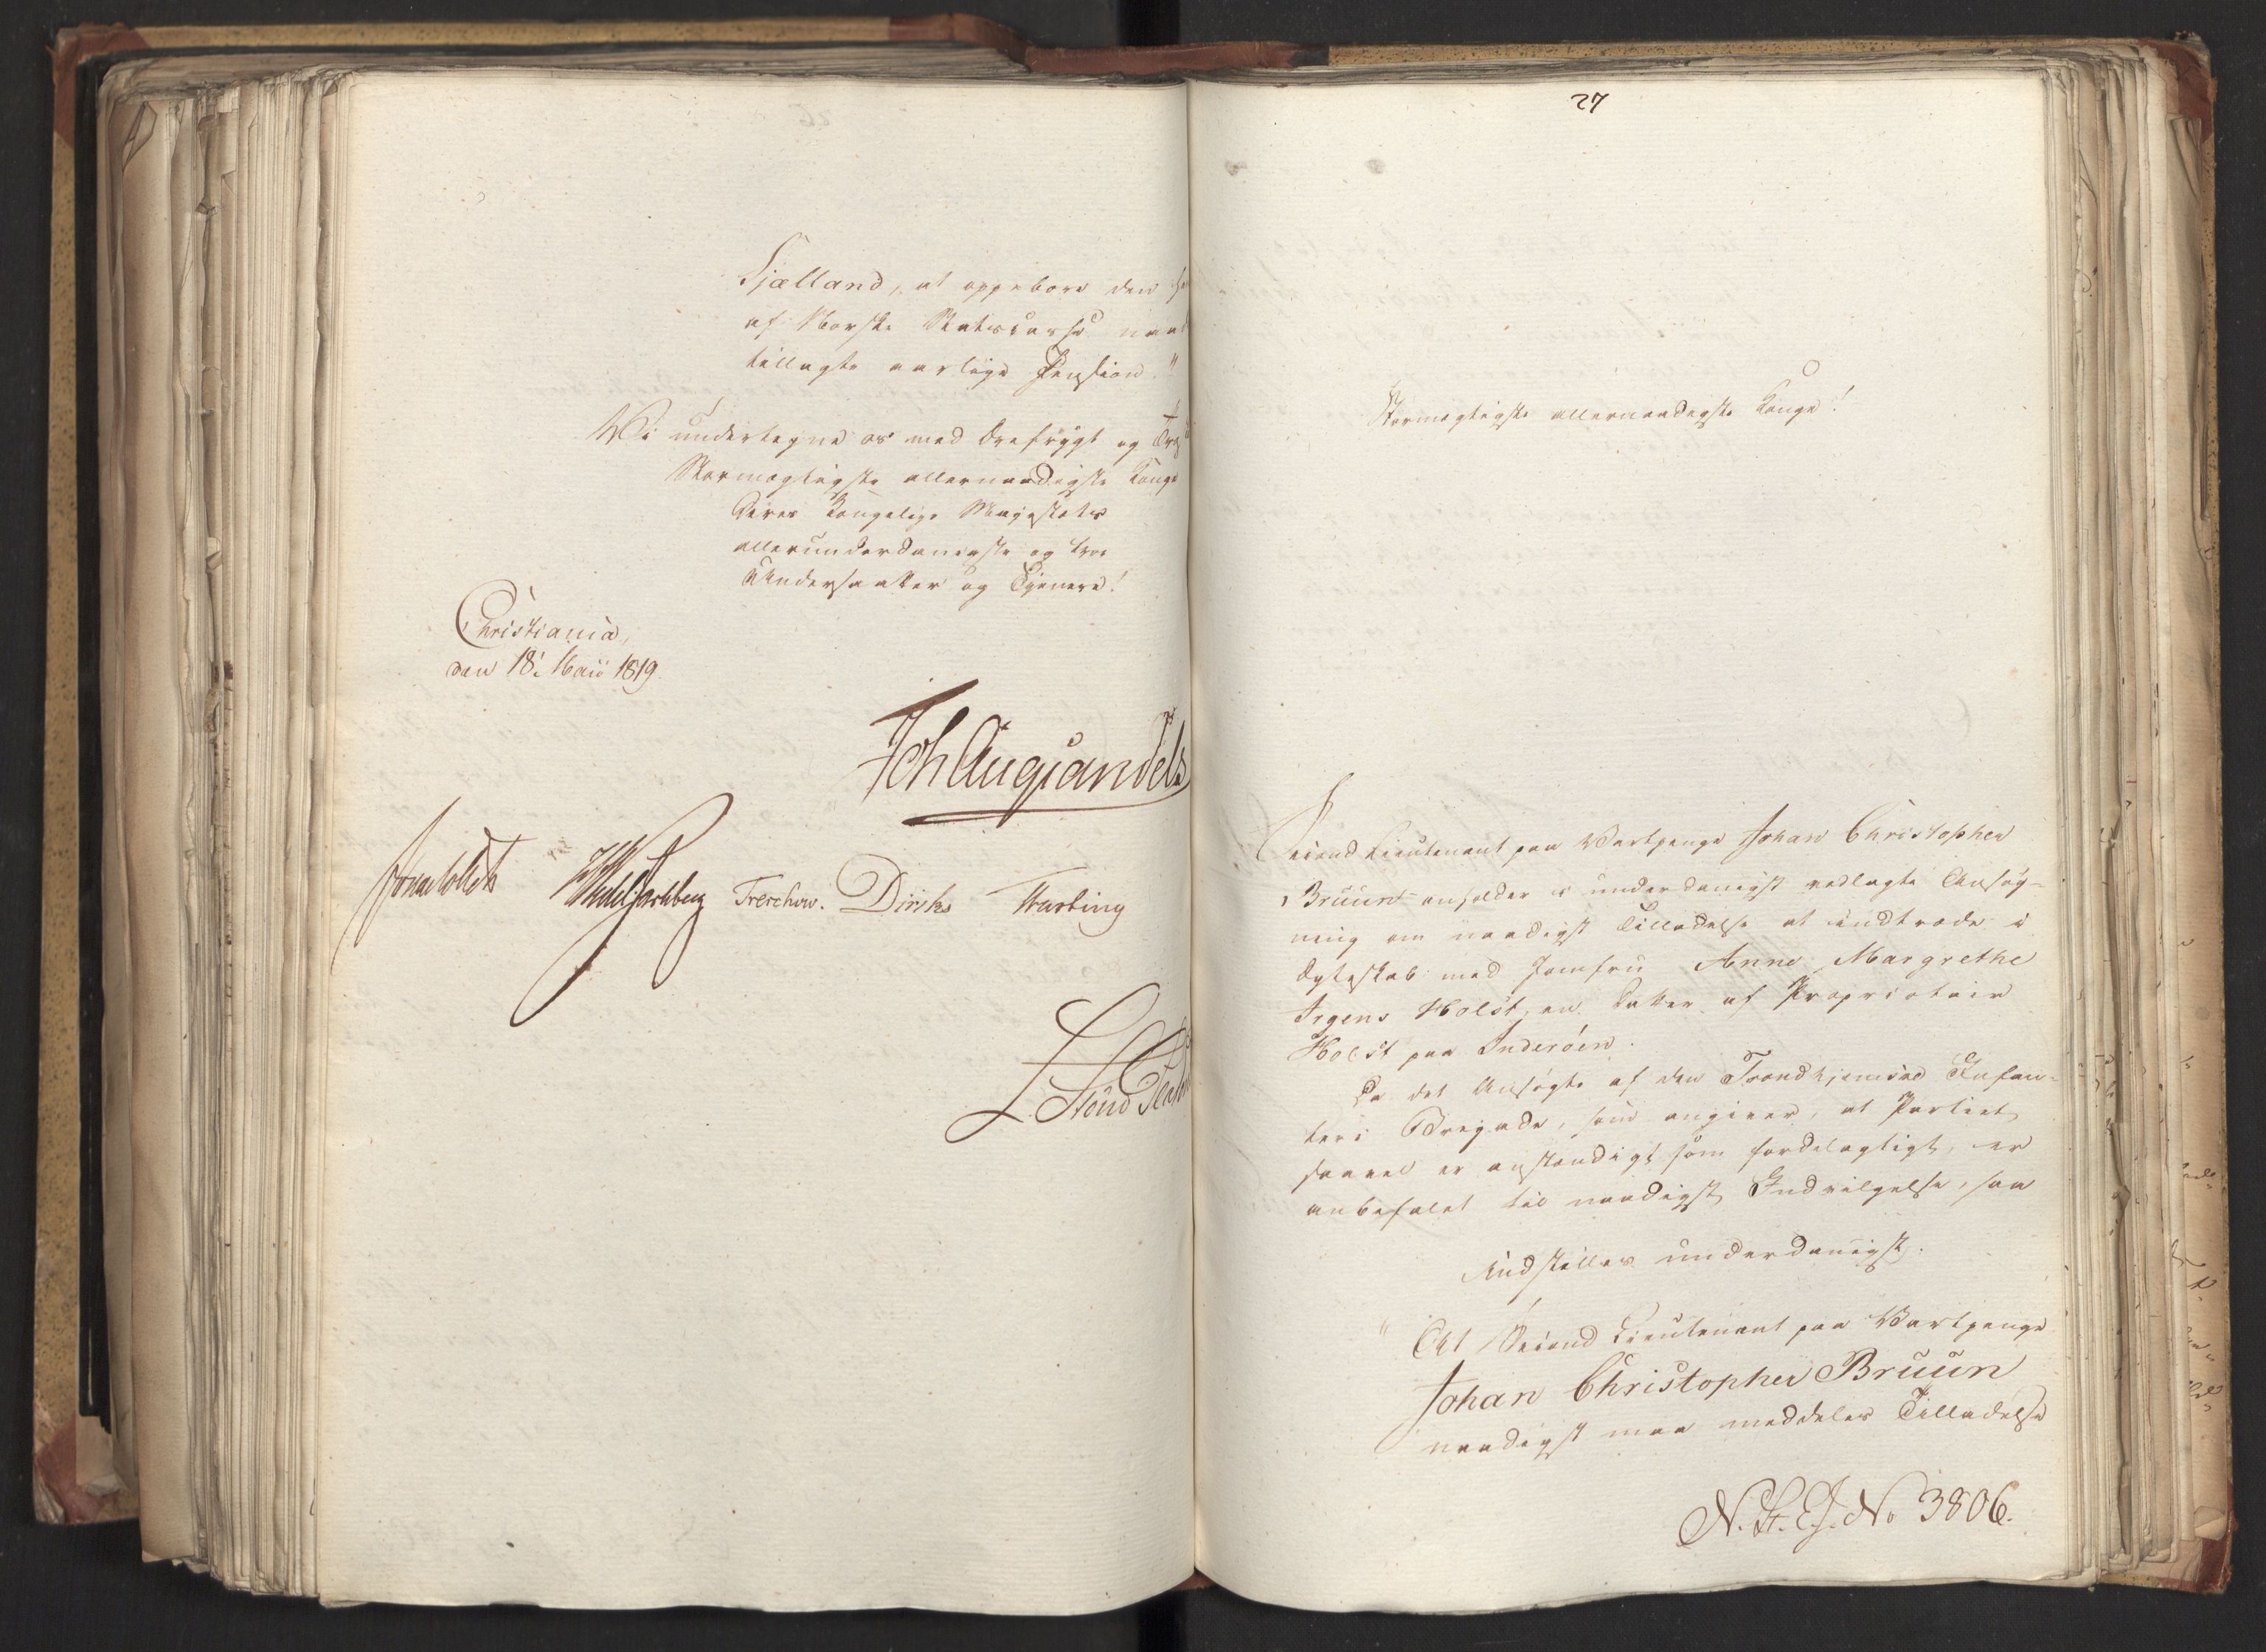 Sjælland, at oppebære den
af Norske Statscasse naad
tillagte aarlige Pension."
Vi undertegne os med Ærefrygt og
Stormægtigste allernaadigste Konge
Deres Kongelige Majestæts
allerunderdanigste og troe
Undersaatter og Tjenere!
Christiania,
den 18: Maii 1819.
Joh Aug Sandels
Sommerfeldt HWedelJarlsberg Treschow. Diriks Krebting
L. Stoud Platou
27
Stormægtigste allernaadigste Konge!
Second Lieutenant paa Vartpenge Johan Christopher
Bruun anholder i underdanigst vedlagte Ansøg-
ning om naadigst Tilladelse at indtræde i
Ægteskab med Jomfru Anne Margrethe
Irgens Holst, en Datter af Proprietair
Holst paa Inderøen.
Da det Ansøgte af den Trondhjemske Infan-
teri Brigade, som angiver, at Partiet
saavel er anstændigt som fordelagtigt, er
anbefalet til naadigst Indvilgelse, saa
indstilles underdanigst:
" At Second Lieutenant paa Vartpenge
Johan Christopher Bruun
naadigst maa meddeles Tilladelse
N. St. E. J. No 3806.